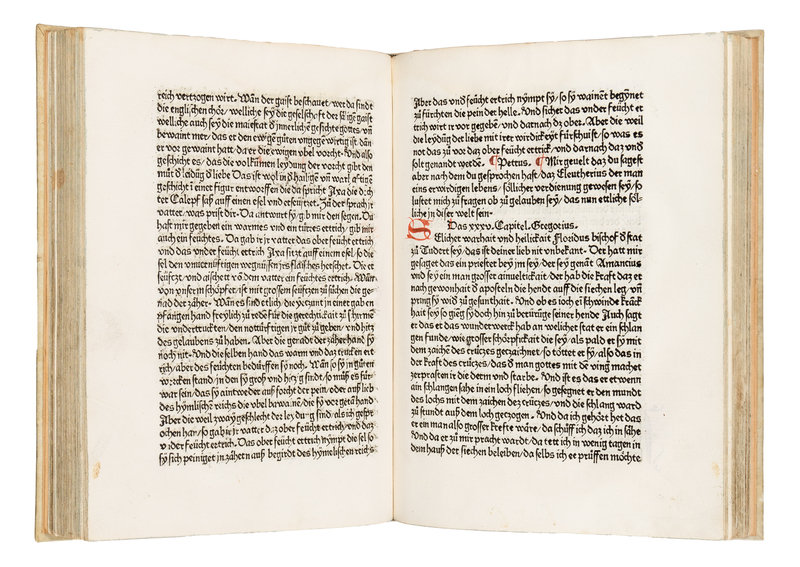 reich vertzogen wirt. Wañ der gaist beschauet/wer da sindt
die englischen chör/welliche sey die geselschaft der säligē gaist
welliche auch sey die maiestat d̄ innerlichē gesichte gottes/vñ
bewaint mer/das er den ewigē gůten vngegē wirtig ist. dān
er vor gewaint hatt/da er die ewigen vbel vorcht. Vnd also
geschicht es/das die volkūmen leydung der vorcht gibt den
můt d̄ leidūg d̄ liebe Das ist wol in d̄ hailigē vñ warhaftigē
geschicht in einer figur entworffen die da spricht Axa die doch
ter Calepf saß auff einen esel vnd erseüftzet. Zů der sprach jr
vatter/was prist dir. Da antwurt sy/gib mir den segen. Du
hast mir gegeben ein warmes vnd ein türres ertrich/gib mir
auch ein feüchtes. Da gab ir jr vatter das ober feücht ertrich
vnd das vnder feücht ertrich Axa sitzt auff einem esel/so die
sel den vnuernünftigen wegnüssen jrs flaisches herschet. Die er
seüftzt vnd aischett vō dem vatter ein feüchtes ertrich. Wañ
von vnserm schöpfer/ist mit grossem seüfzen zů sůchen die ge-
nad der zäher. Wañ es sind etlich/die yetzunt in einer gab en
pfangen hand freylich zů redē für die gerechtikait zů schirmē
die vnderttruckten/den notürftigen jr gůt zů geben/vnd hitz
des gelaubens zů haben. Aber die genad der zäher hand sy
noch nit. Vnd die selben hand das warm vnd daz trucken ert
rich/aber des feüchten bedürffen sy noch. Wañ so sy in gůten
wercken stand/in den sy groß vnd hitzig sind/so můß es für-
war sein/das sy aintweder auß forcht der pein/oder auß lieb
des hymlischen reichs die vbel bewainē/die sy vor getan hand
Aber die weil zway geschlecht der leydung sind/als ich gespr
ochen har/so gab ir jr vatter dz ober feücht ertrich/vnd das
vnder feücht ertrich. Das ober feücht ertrich nympt die sel so
sy sich peiniget in zähern auß begirdt des hymelischen reichs
Aber das vnd̄ feücht ertrich nympt sy/so sy wainēt begynet
zů fürchten die pein der helle. Vnd sicher das vnder feücht er
trich wirt ir vor gegebē/vnd darnach dz ober. Aber die weil
die leydūg der liebe mit irer wirdikeyt fürschüst/so was es
not das zů vor daz ober feücht ertrick/vnd darnach daz vnd̄
solt genandt werdē. ¶ Pettrus. ¶ Mir geuelt daz du sagest
aber nach dem du gesprochen hast/daz Eleutherius der man
eins erwirdigen lebens/söllicher verdienung gewesen sey/so
lustet mich zů fragen ob zů gelauben sey/das nun ettliche söl-
liche jn diser welt sein.
Das xxxv. Capitel. Gregorius.
SElicher warhait vnd heilikait Floridus bischof d̄ stat
zů Tudert sey/das ist deiner lieb nit vnbekant. Der hatt mir
gesaget das ein priester bey jm sey/der sey genāt Amantius
vnd sey ein man grosser ainueltickait. der hab die kraft daz er
nach gewonhait d̄ aposteln die hende auff die siechen leg/vñ
pring sy wid̄ zů gesunthait. Vnd ob es ioch ei schwinde kräck
hait sey so gieng sy doch hin zů berürūge seiner hende Auch sagt
er das et das wunderwerck hab an welicher stat er ein schlan
gen funde/wie grosser schörpfickait die sey/als pald er sy mit
dem zaichē des crützes gezaichnet/so tötter er sy/also das in
der kraft des crützes/das d̄ man gottes mit dē ving̃ machet
zerprasten ir die derm vnd starbe. Vnd ist es das er etwenn
ain schlangen sahe in ein loch fliehen/so gesegnet er den mundt
des lochs mit dem zaichen dez crützes/vnd die schlang ward
zů stundt auß dem loch getzogen. Vnd da ich gehört het das
er ein man also grosser krefte wäre/da schůff ich daz ich in sähe
Vnd da er zů mir pracht wardt/da tett ich in wenig tagen in
dem hauß der siechen beleiben/da selbs ich ee prüffen möchte